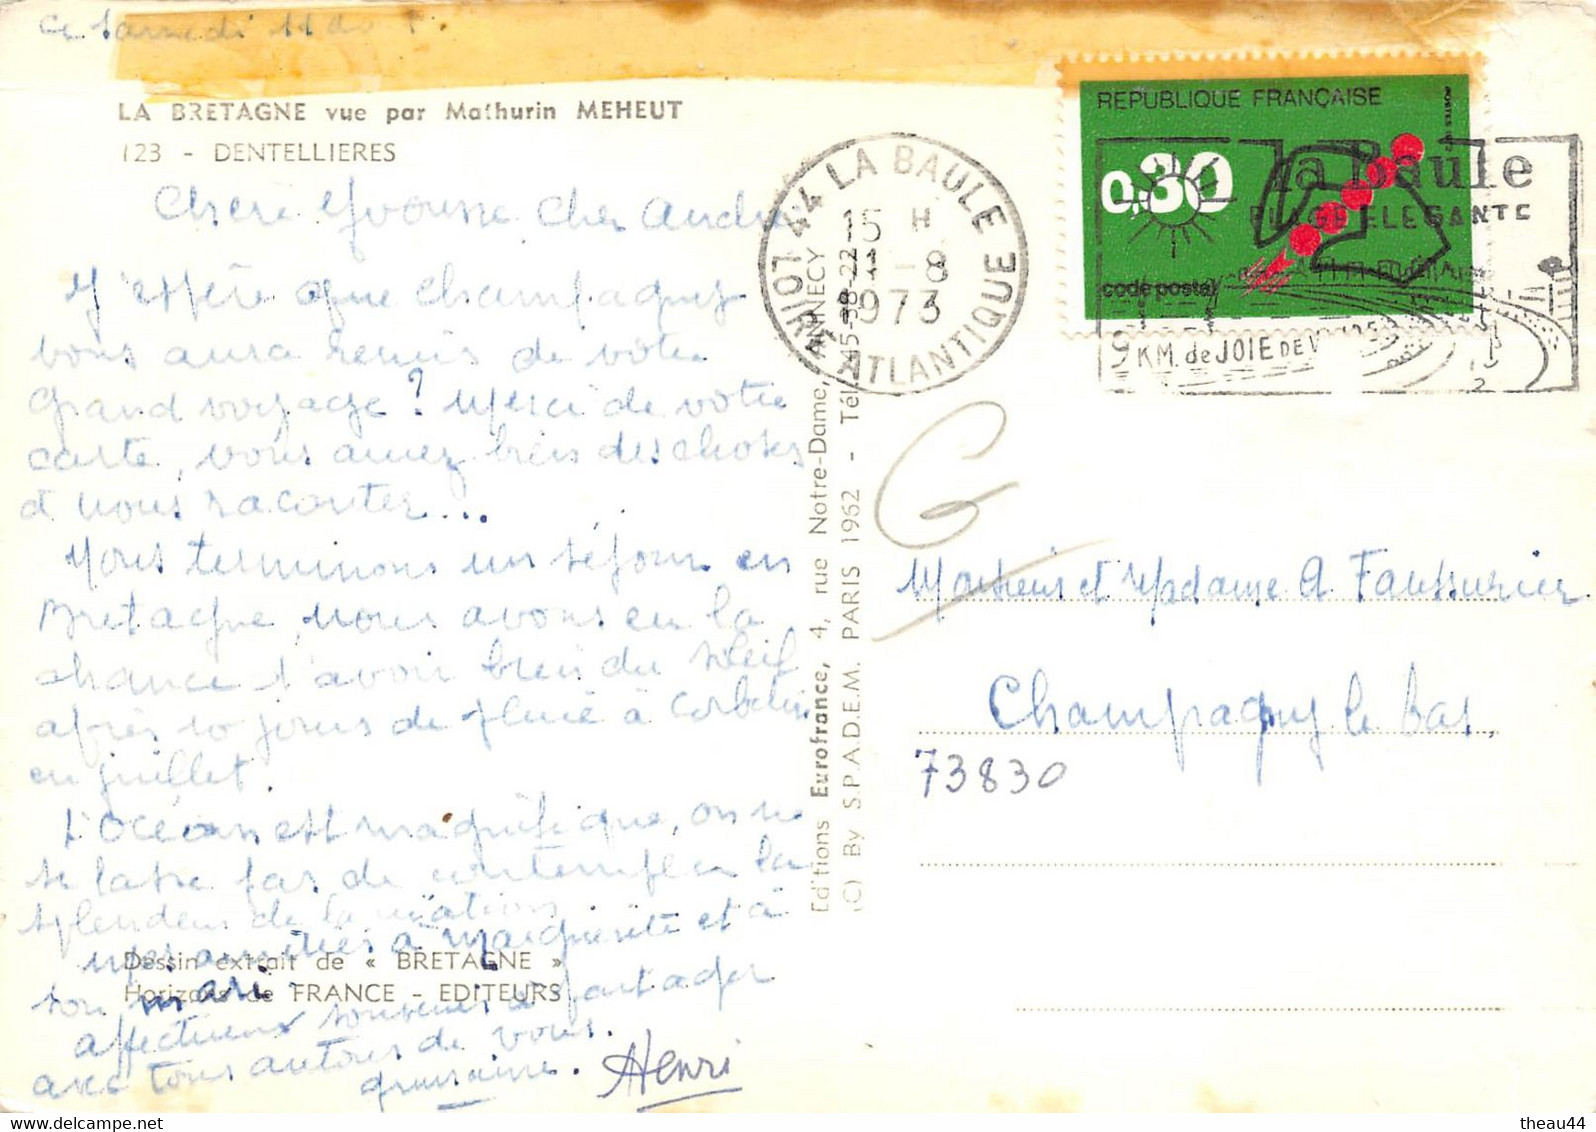 ce Samedi 11 ao
LA BRETAGNE vue par Mathurin MEHEUT
123 - DENTELLIERES
Chère Yvonne Cher André
J'espère que Champagny
vous aura remis de votre
grand voyage ? Merci de votre
carte, vous aurez bien des choses
à nous raconter...
Nous terminons un séjour en
Bretagne, nous avons eu la
chance d'avoir bien du soleil
après 10 jours de pluie à Corbelin
en juillet.
L'Océan est magnifique, on ne
se lasse pas de contempler la
splendeur de la
mes amitiés à Marguerite et à
Dessin extrait de « BRETAGNE »
son mari
Horizons de FRANCE - EDITEURS
affectueux souvenirs à partager
avec tous autour de vous.
Henri
Editions Eurofrance, 4, rue Notre-Dame, ANNECY
(C) By S.P.A.D.E.M. PARIS 1962 - Tél. 45-38-22
44 LA BAULE
LOIRE ATLANTIQUE
15 H
11-8
1973
REPUBLIQUE FRANÇAISE
0,30
code postal
la Baule
PLAGE ELEGANTE
9 KM. de JOIE DE V
G
Monsieur et Madame A Faussurier
Champagny le Bas,
73830
theau44